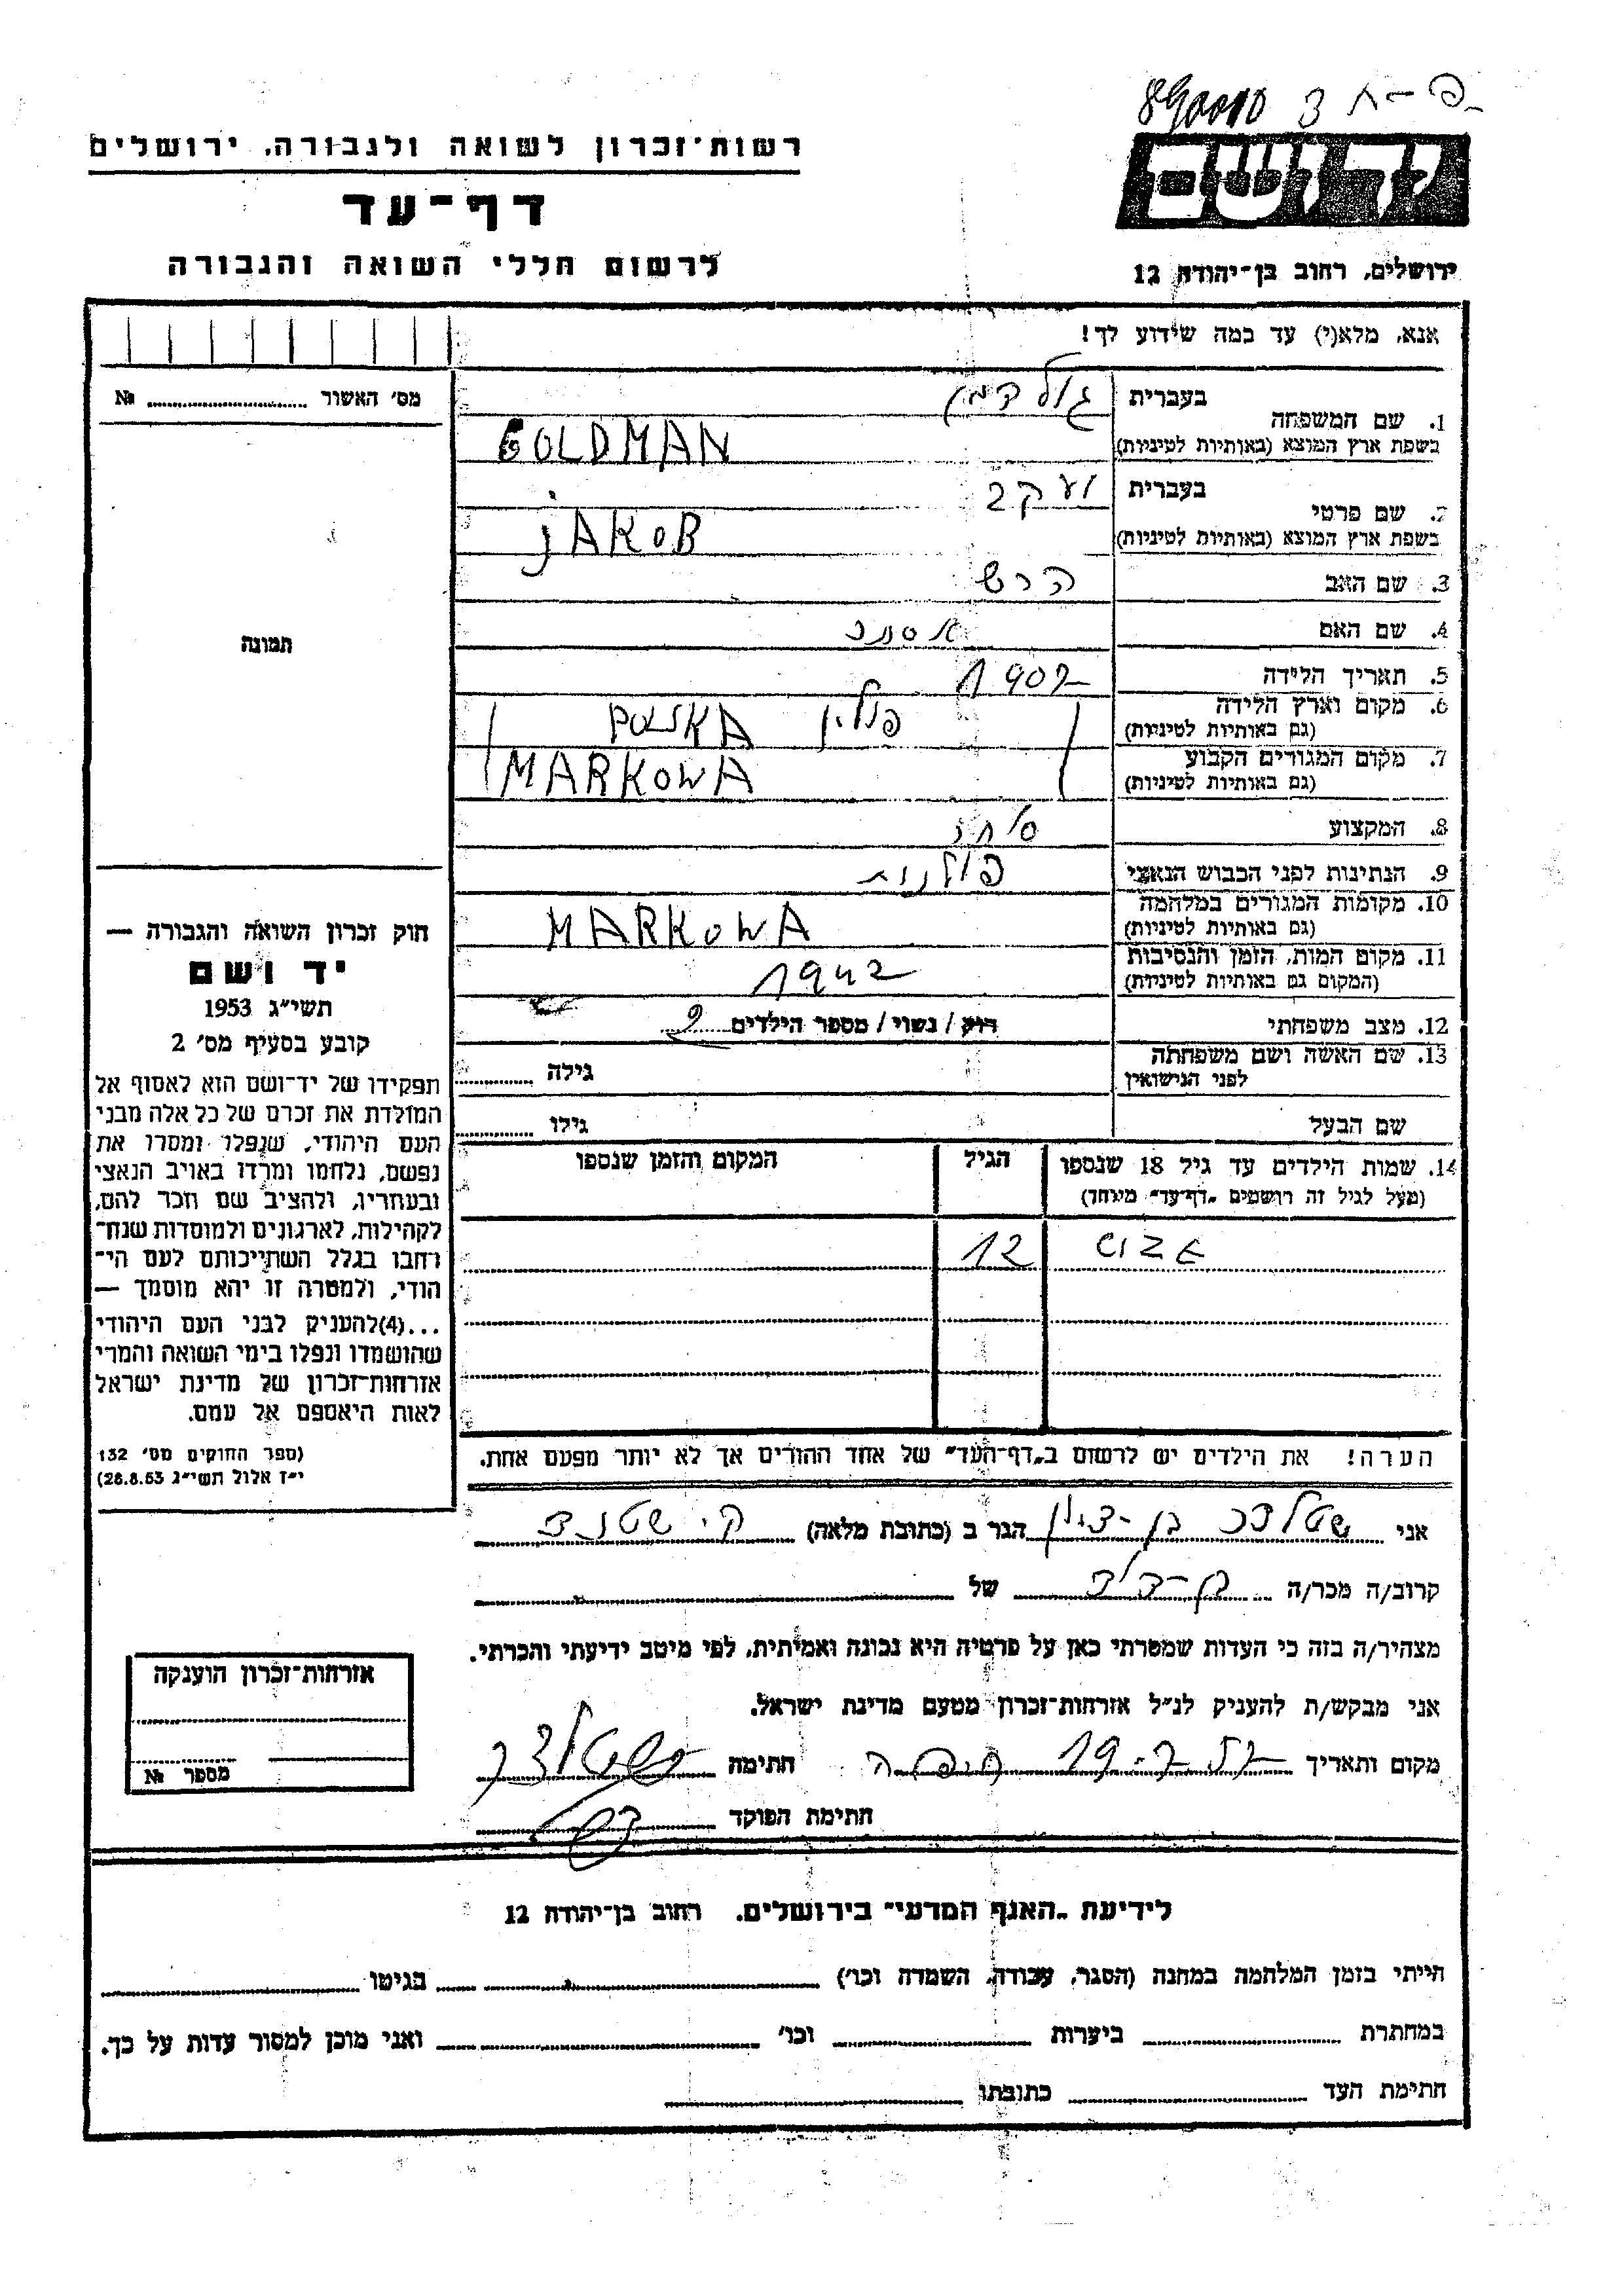 890010 3
רשות־זכרון לשואה ולגבורה, ירושלים
יד ושם
דף־עד
לרשום חללי השואה והגבורה
ירושלים, רחוב בן־יהודה 12
אנא, מלא(י) עד כמה שידוע לך!
מס׳ האשור № 
תמונה
1. שם המשפחה
בעברית גולדמן
בשפת ארץ המוצא (באותיות לטיניות) GOLDMAN
2. שם פרטי
בעברית יעקב
בשפת ארץ המוצא (באותיות לטיניות) JAKOB
3. שם האב הרש
4. שם האם
5. תאריך הלידה 1902
6. מקום וארץ הלידה
(גם באותיות לטיניות) פולין POLSKA
7. מקום המגורים הקבוע
(גם באותיות לטיניות) MARKOWA
8. המקצוע סוחר
9. הנתינות לפני הכבוש הנאצי פולנית
10. מקומות המגורים במלחמה
(גם באותיות לטיניות) MARKOWA
11. מקום המות, הזמן והנסיבות
(המקום גם באותיות לטיניות) 1942
12. מצב משפחתי רווק / נשוי / מספר הילדים 2
13. שם האשה ושם משפחתה
לפני הנישואין
גילה
שם הבעל גילו
14. שמות הילדים עד גיל 18 שנספו
(מעל לגיל זה רושמים „דף־עד״ מיוחד)
הגיל
המקום והזמן שנספו
12
הערה! את הילדים יש לרשום ב„דף־העד״ של אחד ההורים אך לא יותר מפעם אחת.
חוק זכרון השואה והגבורה —
יד ושם
תשי״ג 1953
קובע בסעיף מס׳ 2
תפקידו של יד־ושם הוא לאסוף אל
המולדת את זכרם של כל אלה מבני
העם היהודי, שנפלו ומסרו את
נפשם, נלחמו ומרדו באויב הנאצי
ובעוזריו, ולהציב שם וזכר להם,
לקהילות, לארגונים ולמוסדות שנח־
רבו בגלל השתייכותם לעם הי־
הודי, ולמטרה זו יהא מוסמך —
...(4)להעניק לבני העם היהודי
שהושמדו ונפלו בימי השואה והמרי
אזרחות־זכרון של מדינת ישראל
לאות היאספם אל עמם.
(ספר החוקים מס׳ 132
י״ז אלול תשי״ג 28.8.53)
אני בן-ציון הגר ב (כתובת מלאה) ק׳
קרוב/ה מכר/ה של
מצהיר/ה בזה כי העדות שמסרתי כאן על פרטיה היא נכונה ואמיתית, לפי מיטב ידיעתי והכרתי.
אני מבקש/ת להעניק לנ״ל אזרחות־זכרון מטעם מדינת ישראל.
מקום ותאריך 19-7-57 חיפה חתימה
חתימת הפוקד
אזרחות־זכרון הוענקה
מספר №
לידיעת „האגף המדעי״ בירושלים, רחוב בן־יהודה 12
הייתי בזמן המלחמה במחנה (הסגר, עבודה, השמדה וכו׳) בגיטו
במחתרת ביערות וכו׳ ואני מוכן למסור עדות על כך.
חתימת העד כתובתו